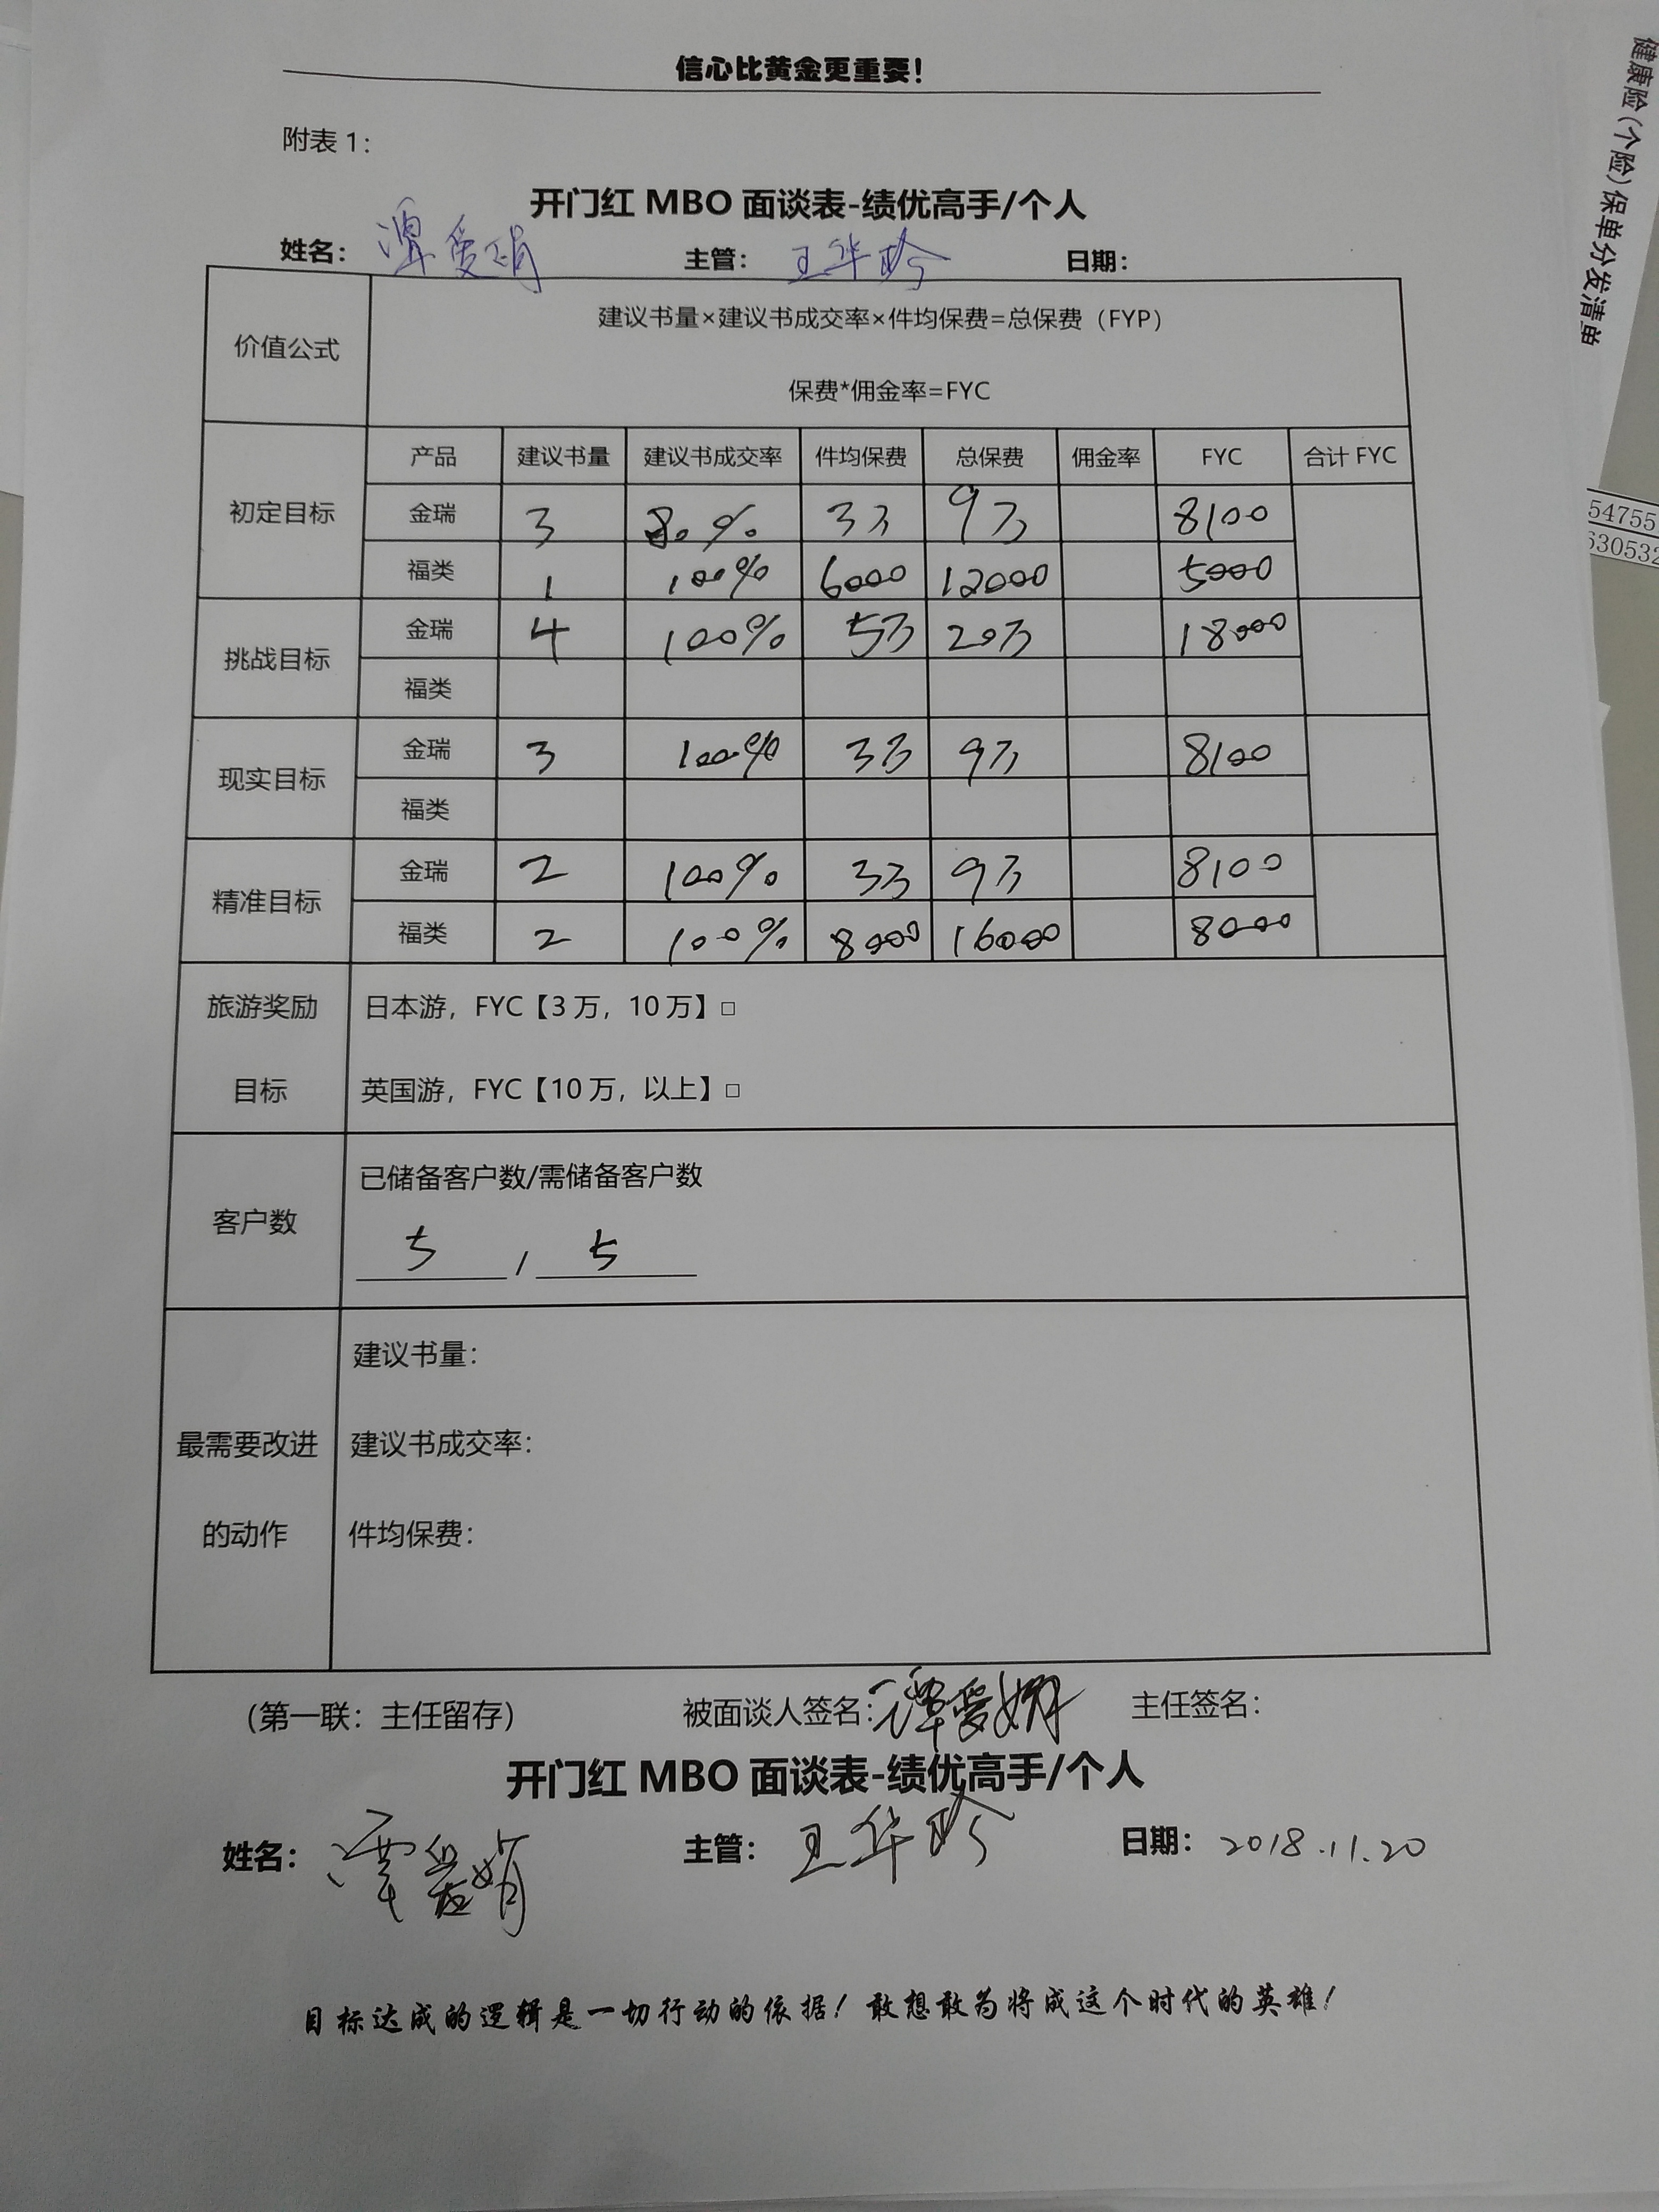 信心比黄金更重要!
附表 1:
开门红 MBO 面谈表-绩优高手/个人
姓名: 谭爱娟 主管: 王华玲 日期:
价值公式 建议书量×建议书成交率×件均保费=总保费（FYP）
保费*佣金率=FYC
产品 建议书量 建议书成交率 件均保费 总保费 佣金率 FYC 合计 FYC
初定目标
金瑞 3 80% 3万 9万 8100
福类 1 100% 6000 12000 5000
挑战目标
金瑞 4 100% 5万 20万 18000
福类
现实目标
金瑞 3 100% 3万 9万 8100
福类
精准目标
金瑞 2 100% 3万 9万 8100
福类 2 100% 8000 16000 8000
旅游奖励 日本游，FYC【3 万，10 万】□
目标 英国游，FYC【10 万，以上】□
客户数 已储备客户数/需储备客户数
5 / 5
建议书量:
最需要改进 建议书成交率:
的动作 件均保费:
(第一联: 主任留存) 被面谈人签名: 谭爱娟 主任签名:
开门红 MBO 面谈表-绩优高手/个人
姓名: 谭爱娟 主管: 王华玲 日期: 2018.11.20
目标达成的逻辑是一切行动的依据! 敢想敢为将成这个时代的英雄!
健康险(个险)保单分发清单
54755
630532